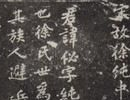 宋故徐純中
君諱佖字純
也徐氏世為
其族人避兵